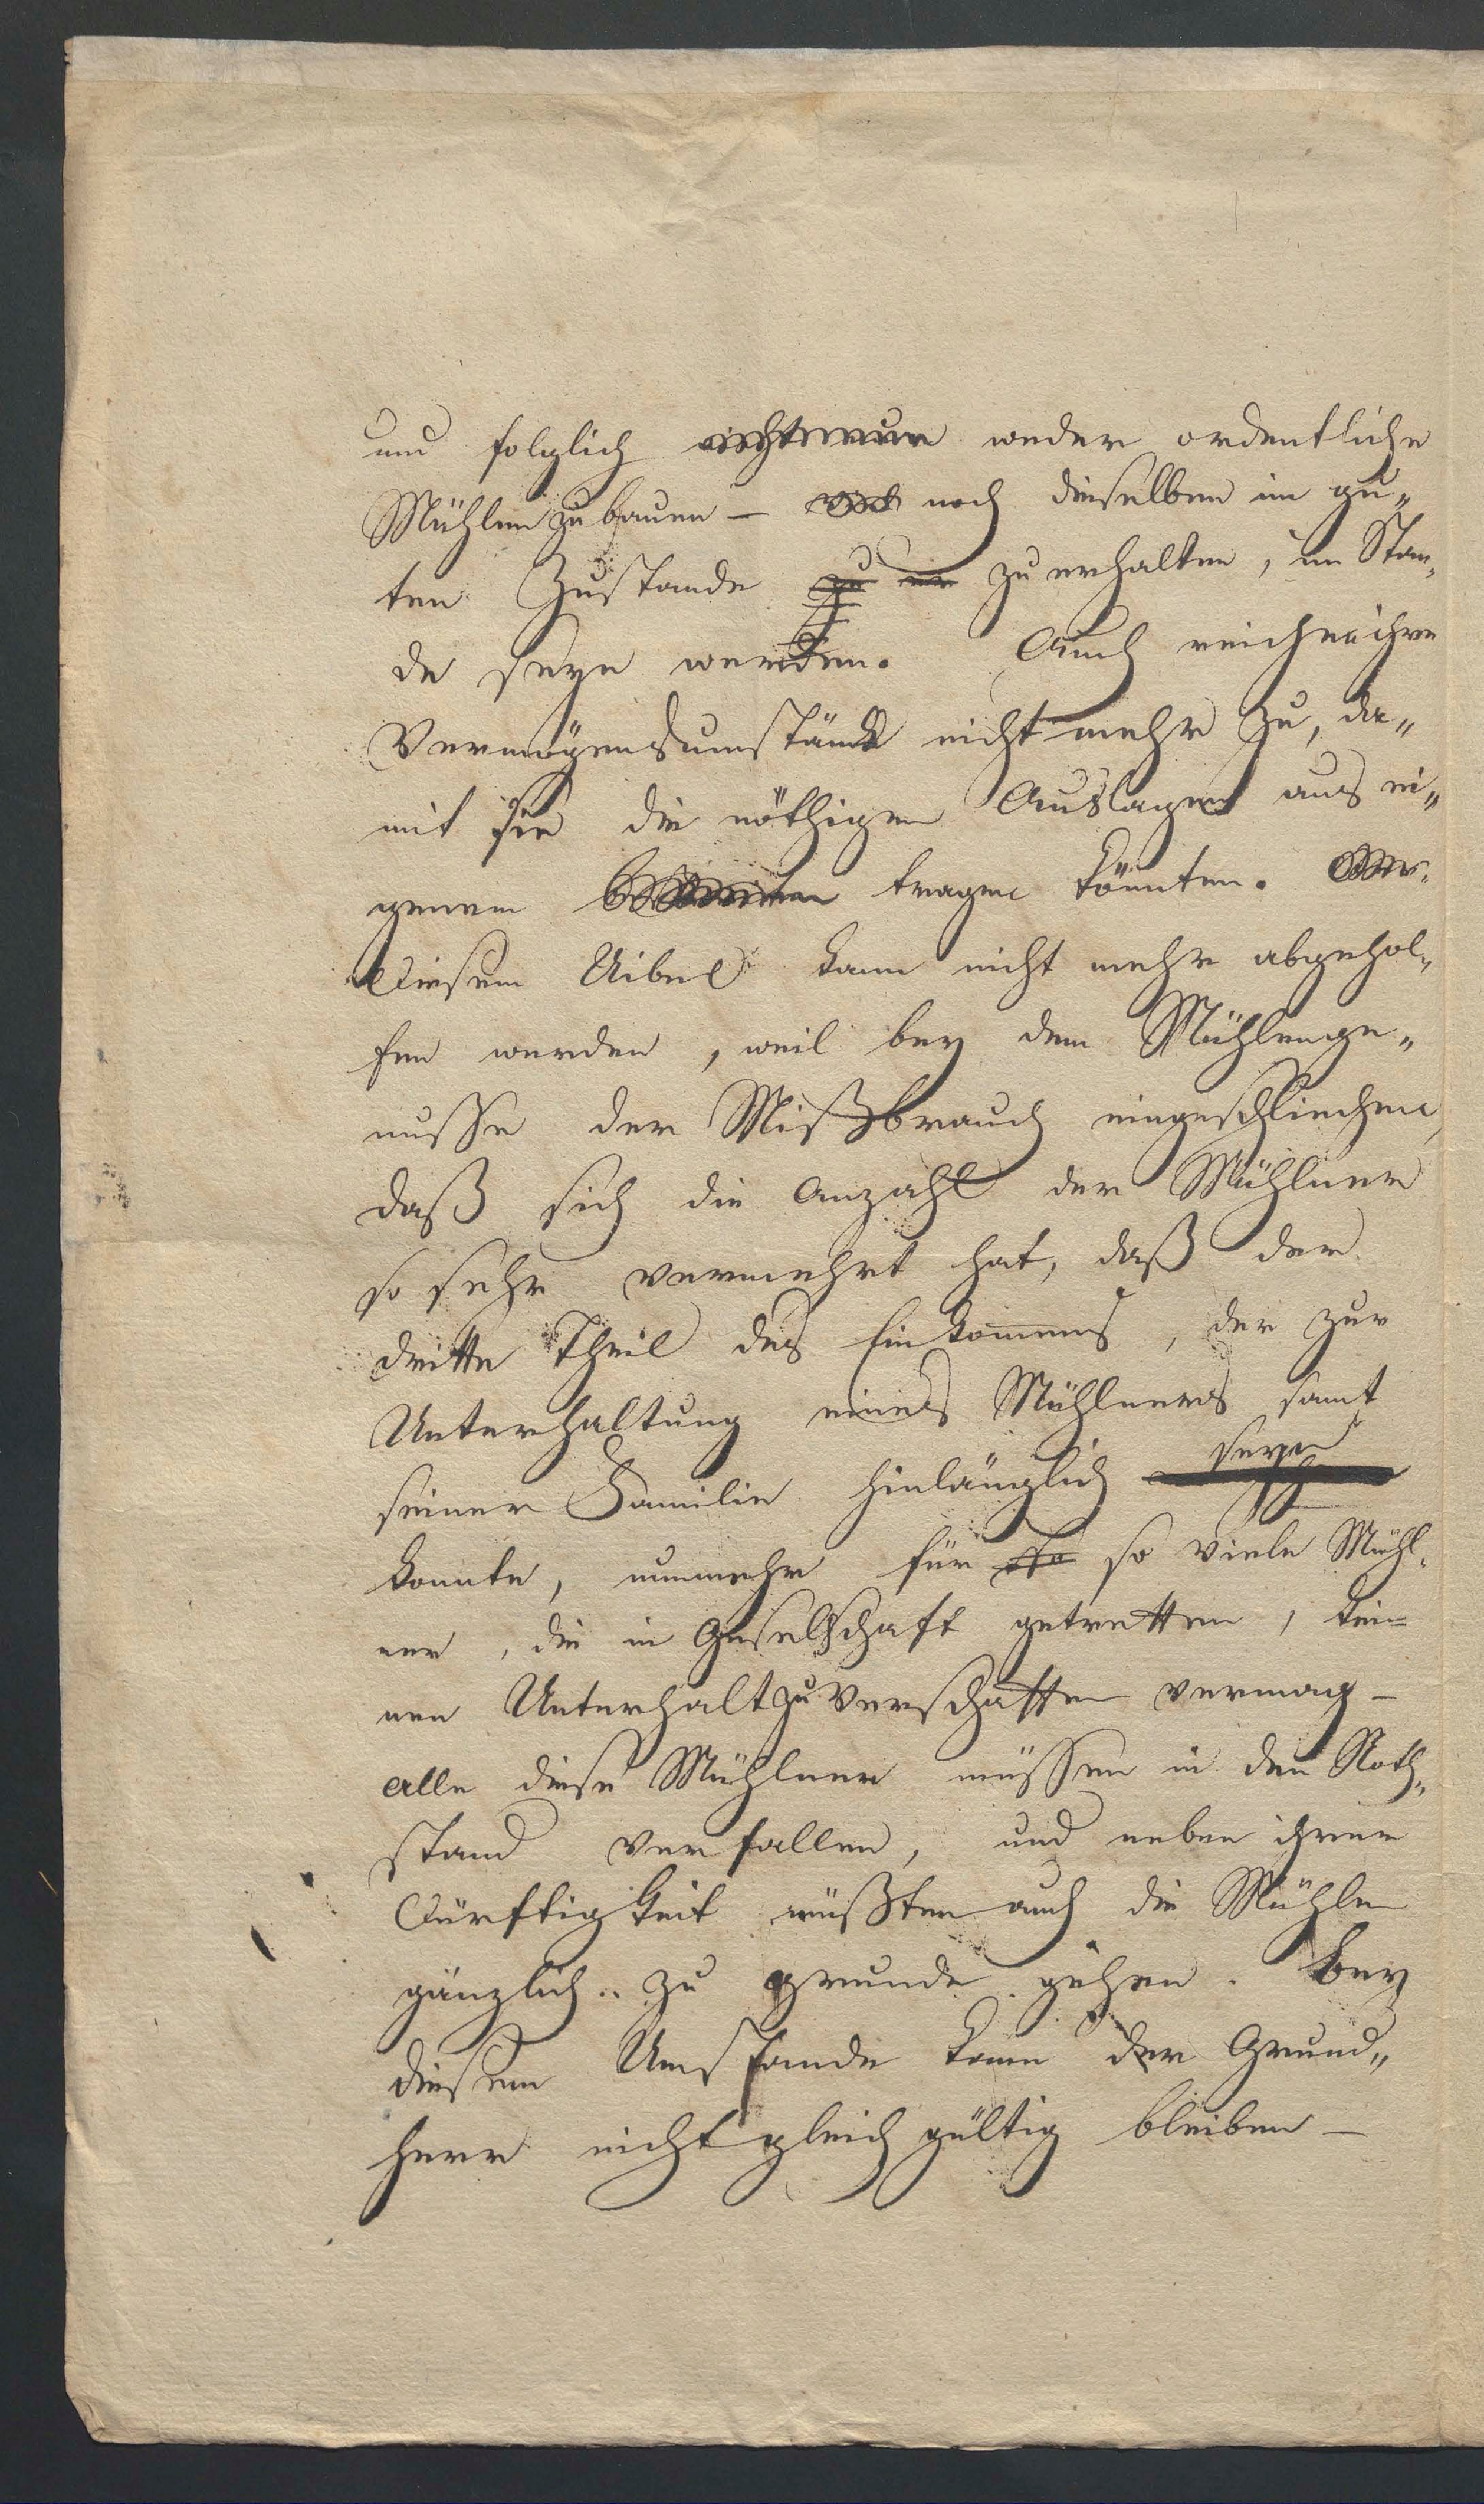 und folglich weder ordentliche
Mühlen zu bauen – noch dieselben im gu„
ten Zustande zu er zu erhalten, im Stan„
de seyn werden. Auch reichen ihre
Vermögensumstände nicht mehr zu, da„
mit sie die nöthigen Auslagen aus ei„
genem tragen könnten.
Diesem Uibel kann nicht mehr abgehol„
fen werden, weil bey dem Mühlenge„
nusse der Mißbrauch eingeschliechen,
daß sich die Anzahl der Mühlner
so sehr vermehrt hat, daß der
dritte Theil des Einkommens, der zur
Unterhaltung eines Mühlners samt
seiner Familie hinlänglich seyn
konnte, nunmehr für so viele Mühl„
ner, die in Geselschaft getretten, kei=
nen Unterhalt zu verschaffen vermag –
alle diese Mühlner müssen in den Noth„
stand verfallen, und neben ihrer
Dürftigkeit müßten auch die Mühlen
gänzlich zu grunde gehen. Bey
diesem Umstande kann der Grund„
herr nicht gleichgültig bleiben –